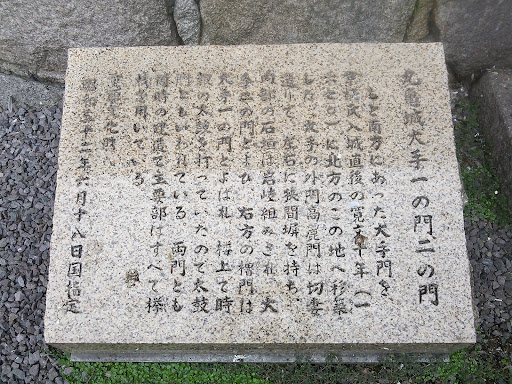 丸亀城大手一の門二の門
もと南方にあった大手門を
京極氏入城直後の寛文十年（一
六七〇）に北方のこの地へ移築
した。大手の外門高麗門は切妻
造りで、左右に狭間塀を持ち、
内部の石垣は岩岐組みされ、大
手二の門とよび、右方の櫓門は
大手一の門とよばれ、楼上て時
報の太鼓を打っていたので太鼓
門ともいわれている。両門とも
同時の建造で主要部はすべて欅
材を用いている。
重要文化財
昭和三十二年六月十八日国指定